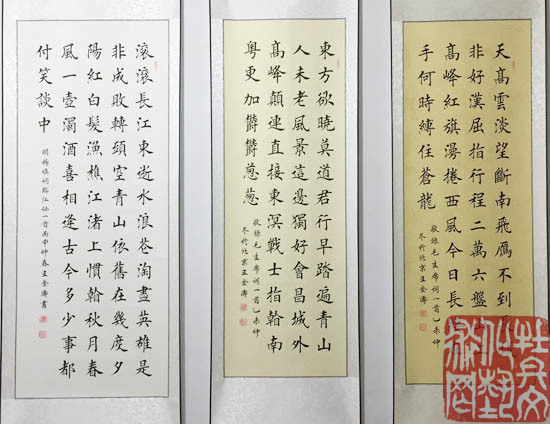 天高雲淡望斷南飛鴈不到長
非好漢屈指行程二萬六盤
高峰紅旗漫捲西風今日長
手何時縛住蒼龍
敬錄毛主席詞一首乙未仲
冬於北京王金濤
東方欲曉莫道君行早踏遍青山
人未老風景這邊獨好會昌城外
高峰顛連直接東溟戰士指翰南
粵更加鬱鬱葱葱
敬錄毛主席詞一首乙未仲
冬於北京王金濤
滾滾長江東逝水浪花淘盡英雄是
非成敗轉頭空青山依舊在幾度夕
陽紅白髮漁樵江渚上慣翰秋月春
風一壺濁酒喜相逢古今多少事都
付笑談中
明楊慎詞臨江仙一首丙申仲春王金濤書